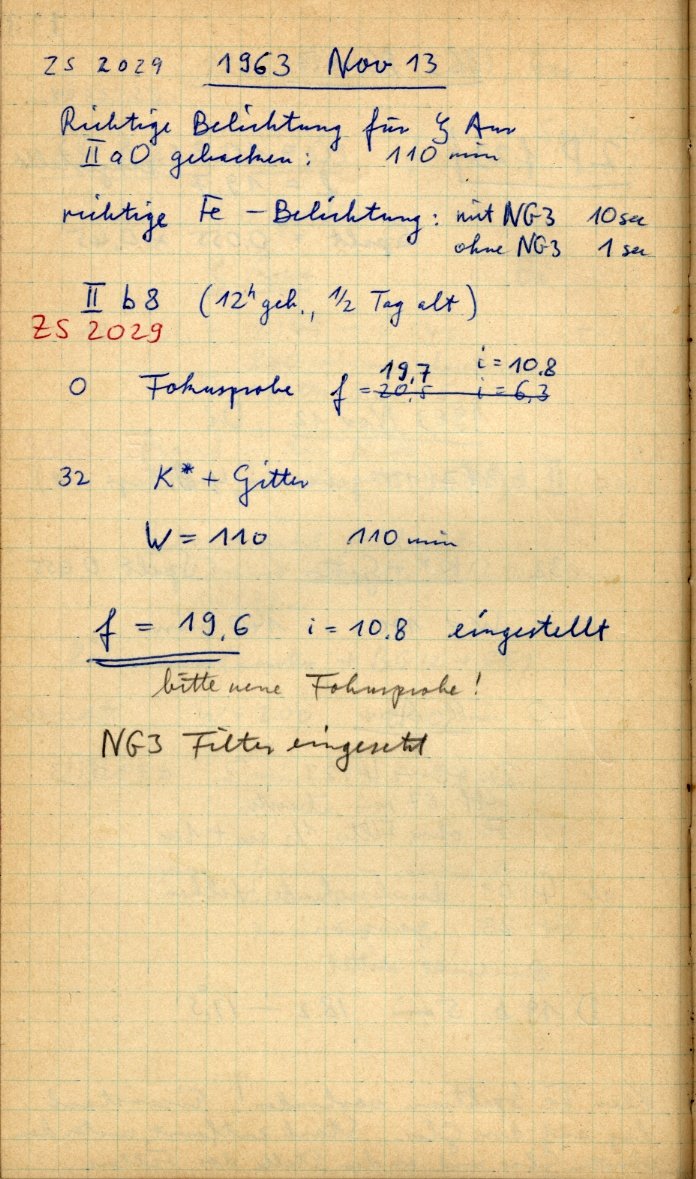 ZS 2029 1963 Nov 13
Richtige Belichtung für ζ Aur
II a O gebacken: 110 min
richtige Fe – Belichtung: mit NG3 10 sec
ohne NG3 1 sec
II b 8 (12ʰ geb., 1/2 Tag alt)
ZS 2029
19,7 i = 10.8
0 Fokusprobe f = 20,5 i = 6,3
32 K* + Gitter
W = 110 110 min
f = 19,6 i = 10.8 eingestellt
bitte neue Fokusprobe!
NG3 Filter eingesetzt